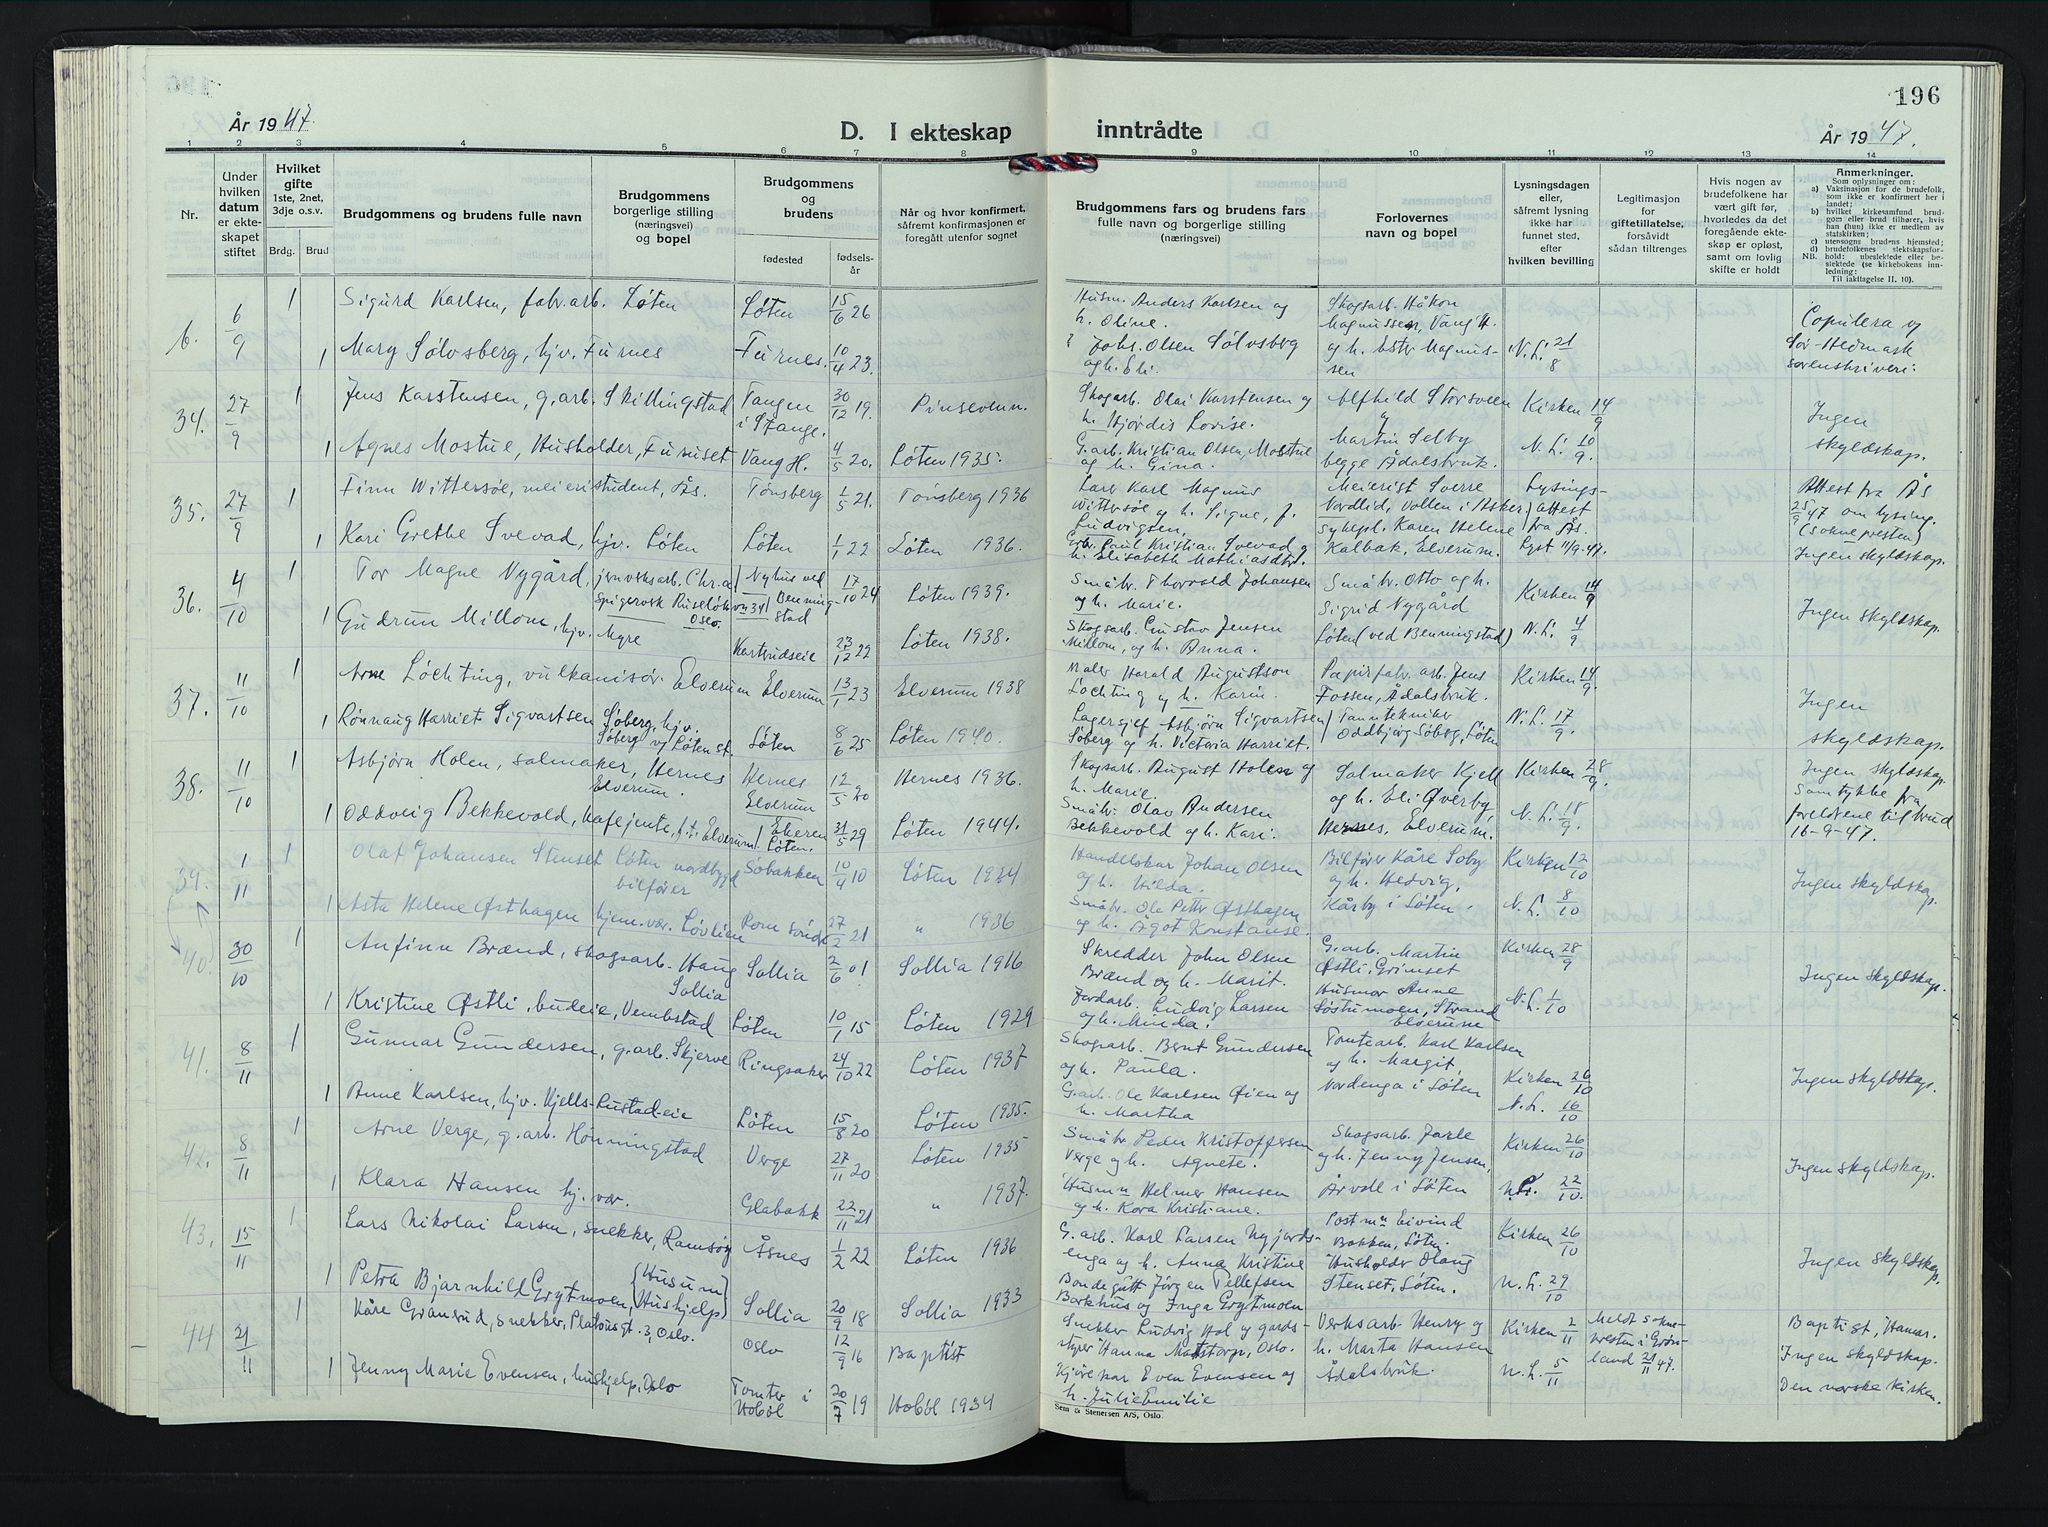 196
År 1947.
D. I ekteskap inntrådte
År 1947.
1 2 3 4 5 6 7 8 9 10 11 12 13 14
Nr.
Under hvilken datum er ekteskapet stiftet
Hvilket gifte 1ste, 2net, 3dje o.s.v.
Brdg. Brud
Brudgommens og brudens fulle navn
Brudgommens borgerlige stilling (næringsvei) og bopel
Brudgommens og brudens
fødested fødselsår
Når og hvor konfirmert, såfremt konfirmasjonen er foregått utenfor sognet
Brudgommens fars og brudens fars fulle navn og borgerlige stilling (næringsvei)
Forlovernes navn og bopel
Lysningsdagen eller, såfremt lysning ikke har funnet sted, efter hvilken bevilling
Legitimasjon for giftetillatelse, forsåvidt sådan tiltrenges
Hvis nogen av brudefolkene har vært gift før, hvorledes da det foregående ekteskap er opløst, samt om lovlig skifte er holdt
Anmerkninger.
Som oplysninger om:
a) Vaksinasjon for de brudefolk, som ikke er konfirmert her i landet;
b) hvilket kirkesamfund brudgom eller brud tilhører, hvis han (hun) ikke er medlem av statskirken;
c) utensogns brudens hjemsted;
d) brudefolkenes slektskapsforhold: ubeslektede eller beslektede (se kirkebokens innledning:
NB. Til iakttagelse II. 10).
6. 6/9 1 Sigurd Karlsen, fabr.arb. Løten Løten 15/6 26 Husm. Anders Karlsen og h. Oline. Skogsarb. Håkon Magnussen, Vang H.
1 Mary Sølvsberg, hjv. Furnes Furnes. 10/4 23. Johs. Olsen Sølvsberg og h. Eli. og h. Ester Magnussen N.L. 21/8 Copulera v/ Sør-Hedmark sorenskriveri.
34. 27/9 1 Jens Karstensen, g.arb. Skillingstad Tangen i Stange. 30/12 19. Pinsevenn. Skogarb. Olai Karstensen og h. Hjørdis Lovise. Alfhild Storsveen & Kirken 14/9 Ingen skyldskap.
1 Agnes Mostue, Husholder, Furuset Vang H. 4/5 20. Løten 1935. G.arb. Kristian Olsen, Mostue og h. Gina. Martin Selby begge Ådalsbruk. N.L. 10/9.
35. 27/9 1 Finn Wittersøe, meieristudent, Ås. Tønsberg 1/5 21. Tønsberg 1936 Lærer Karl Magnus Wittersøe og h. Signe, f. Ludvigsen, Meierist Sverre Nordlid, Vollen i Asker, Lysings-attest fra Ås. Attest fra Ås 25/9 47 om lysing. (soknepresten)
1 Kari Grethe Svevad, hjv. Løten Løten 1/1 22 Løten 1936. Grbr. Paul Kristian Svevad og h. Elisabeth Mathiasdtr. sykepl. Karen Helene Kalbak, Elverum. Lyst 11/9.47. Ingen skyldskap.
36. 4/10 1 Tor Magne Nygård, jernverksarb. Chr.a Spigerverk Ruseløkvn 34 Oslo. Nyhus ved Benningstad 17/10 24 Løten 1939. Småbr. Thorvald Johansen og h. Marie. Småbr. Otto og h. Sigrid Nygård Kirken 14/9 Ingen skyldskap.
1 Gudrun Millom, hjv. Myre Kartrudseie 23/12 22 Løten 1938. Skogsarb. Gustav Jensen Millom, og h. Anna. Løten (ved Benningstad) N.L. 4/9
37. 11/10 1 Arne Løchting, vulkanisør. Elverum Elverum 13/1 23 Elverum 1938 Maler Harald Augustson Løchting og h. Karin. Papirfabr. arb. Jens Fossen, Ådalsbruk. Kirken 14/9. Ingen skyldskap.
1 Rønnaug Harriet Sigvartsen Søberg, hjv. Søberg v/ Løten st. Løten 8/6 25 Løten 1940. Lagersjef Asbjørn Sigvartsen Søberg og h. Victoria Harriet. Tanntekniker Oddbjørg Søberg, Løten N.L. 17/9.
38. 11/10 1 Asbjørn Holen, salmaker, Hernes Elverum. Hernes Elverum 12/5 20 Hernes 1936. Skogsarb. August Holen og h. Marie. Salmaker Kjell og h. Eli Øverby, Kirken 28/9. Ingen skyldskap. Samtykke fra foreldrene til brud 16-9-47.
1 Oddveig Bekkevold, kafejente, f.t. Elverum. Ekeren Løten. 31/5 29 Løten 1944. Småbr. Olav Andersen Bekkevold og h. Kari. Hernes, Elverum. N.L. 18/9.
39. 1/11 1 Olaf Johansen Stenset Løten nordbygd bilfører Søbakken 10/4 10 Løten 1924 Handelskar Johan Olsen og h. Hilda. Bilfører Kåre Søby og h. Hedvig, Kirken 12/10 Ingen skyldskap.
1 Asta Helene Østhagen hjem.vær. Løvlien Romsøride 27/2 21 " 1936 Småbr. Ole Petter Østhagen og h. Ågot Konstanse. Kårby i Løten. N.L. 8/10
40. 30/10 1 Anfinn Brænd, skogsarb. Haug Sollia Sollia 2/6 01 Sollia 1916 Skredder John Olsen Brænd og h. Marit. G.arb. Martin Østli, Grimset Kirken 28/9 Ingen skyldskap.
1 Kristine Østli, budeie, Vembstad Løten 10/1 15 Løten 1929 Jordarb. Ludvig Larsen og h. Minda. Husmor Anne Løstumoen, Strand Elverum N.L. 1/10
41. 8/11 1 Gunnar Gundersen, g.arb. Skjerve Ringsaker 24/10 22 Løten 1937 Skogsarb. Bernt Gundersen og h. Paula. Tomtearb. Karl Karlsen og h. Margit, Kirken 26/10 Ingen skyldskap.
1 Anne Karlsen, hjv. Kjells-Lustad-eie Løten 15/8 20 Løten 1935. G.arb. Ole Karlsen Øien og h. Martha Nordenga i Løten N.L. 16/10
42. 8/11 1 Arne Verge, g.arb. Hønningstad Verge 27/11 20 Løten 1935 Småbr. Peder Kristoffersen Verge og h. Agnete. Skogsarb. Jarle og h. Jenny Jensen, Kirken 26/10 Ingen skyldskap.
1 Klara Hansen hj. vær. Glabakk 22/11 21 " 1937. Husmn Helmer Hansen og h. Kora Kristiane. Årvoll i Løten N.L. 22/10.
43. 15/11 1 Lars Nikolai Larsen, snekker, Ramsøy Åsnes 1/2 22 Løten 1936 G.arb. Karl Larsen Nyjordsenga og h. Anna Kristine Postmn Eivind Bakken, Løten. Kirken 26/10 Ingen skyldskap.
1 Petra Bjarnhild Grytmoen (Husum) (Hushjelp) Sollia 20/9 18 Sollia 1933 Bondegutt Jørgen Tellefsen Barkhus og Inga Grytmoen Husholder Olaug Stenset, Løten. N.L. 29/10
44 21/11 1 Kåre Gransrud, snekker, Platousgt. 3, Oslo. Oslo 12/9 16 Baptist Snekker Ludvig Hal og gårdstyrer Hanna Matstorp, Oslo. Verksarb. Henry og h. Marta Hansen Kirken 2/11 Meldt soknepresten i Grønland 21/11 47. Baptist, Hamar. Ingen skyldskap.
1 Jenny Marie Evensen, hushjelp, Oslo Tomter i Hobøl 20/7 19 Hobøl 1934 Kjørekar Even Evensen og h. Julie Emilie Ådalsbruk. N.L. 5/11 Den norske kirken.
Sem & Stenersen A/S, Oslo.